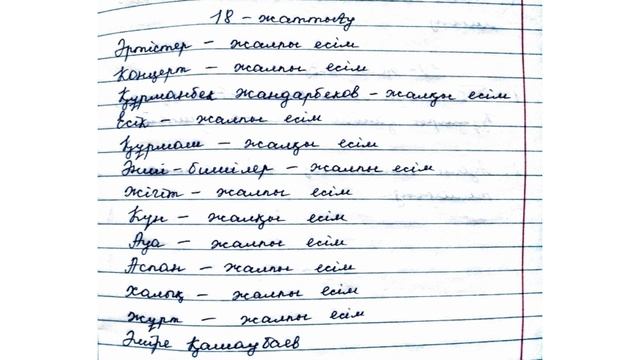 18 - жаттығу
Әртістер – жалпы есім
Концерт – жалпы есім
Құрманбек Жандарбеков – жалқы есім
Есік – жалпы есім
Құрмаш – жалқы есім
Әнші-бишілер – жалпы есім
Жігіт – жалпы есім
Күн – жалқы есім
Ауа – жалпы есім
Аспан – жалпы есім
Халық – жалпы есім
Жұрт – жалпы есім
Әміре Қашаубаев